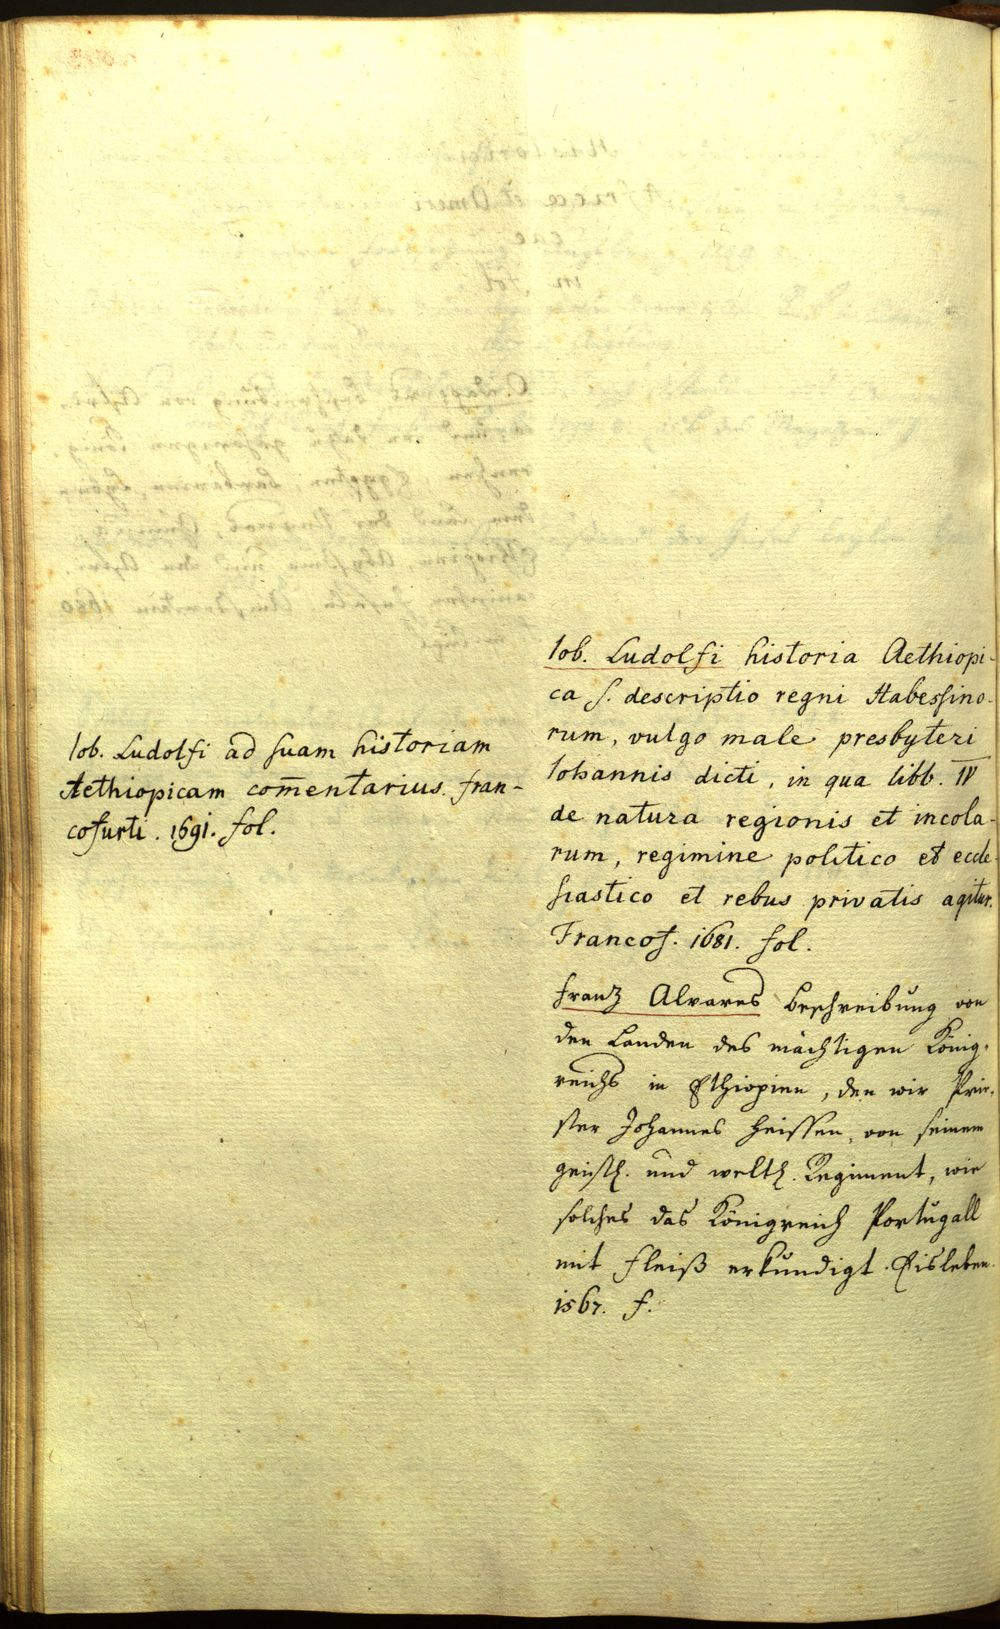 Iob. Ludolfi ad suam historiam
Aethiopicam com̄entarius. fran-
cofurti. 1691. fol.
Iob. Ludolfi historia Aethiopi-
ca s. descriptio regni Habessino-
rum, vulgo male presbyteri
Iohannis dicti, in qua libb. IV
de natura regionis et incola-
rum, regimine politico et eccle-
siastico et rebus privatis agitur.
Francof. 1681. fol.
Franz Alvares Beschreibung von
den Landen des mächtigen König-
reichs in Ethiopien, den wir Prie-
ster Johannes heissen, von seinem
geistl. und weltl. Regiment, wie
solches das Königreich Portugall
mit Fleiß erkundigt. Eisleben.
1567. f.